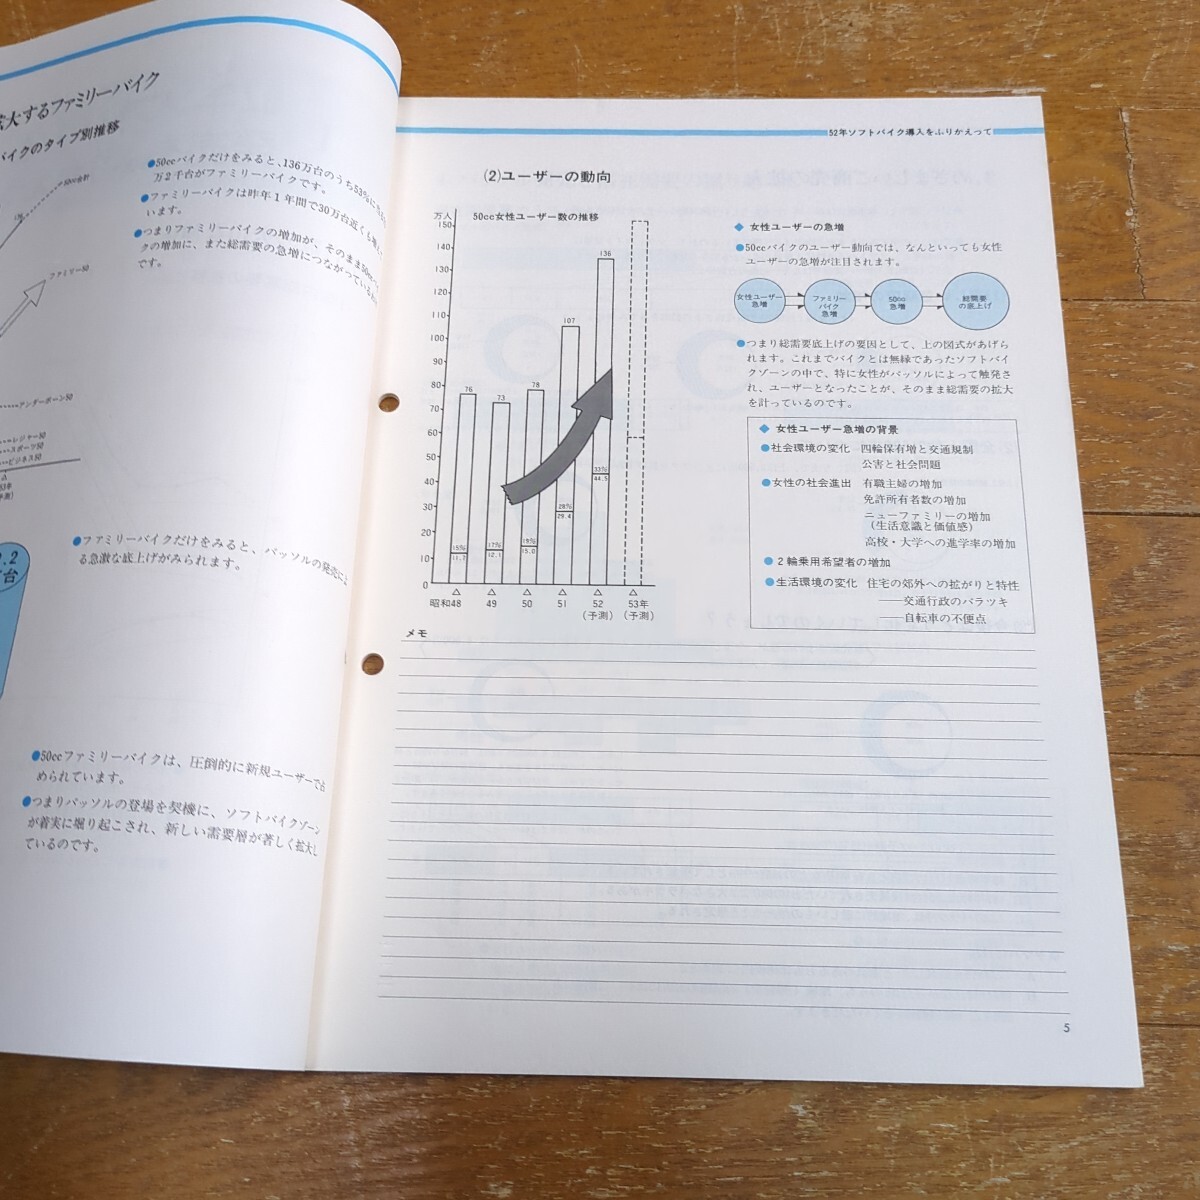 拡大するファミリーバイク
バイクのタイプ別推移
50cc合計
ファミリー50
アンダーボーン50
レジャー50
スポーツ50
ビジネス50
●50ccバイクだけをみると、136万台のうち53%に
万2千台がファミリーバイクです。
●ファミリーバイクは昨年1年間で30万台近くも
います。
●つまりファミリーバイクの増加が、そのまま50cc
クの増加に、また総需要の急増につながっている
です。
●ファミリーバイクだけをみると、バッソルの発売によ
る急激な底上げがみられます。
●50ccファミリーバイクは、圧倒的に新規ユーザーで占
められています。
●つまりバッソルの登場を契機に、ソフトバイクゾーン
が着実に堀り起こされ、新しい需要層が著しく拡大し
ているのです。
52年ソフトバイク導入をふりかえって
(2)ユーザーの動向
50cc女性ユーザー数の推移
万人
150
140
130
120
110
100
90
80
70
60
50
40
30
20
10
0
76
73
78
107
136
15%
11.7
17%
12.1
19%
15.0
28%
29.4
33%
44.5
昭和48 49 50 51 52 53年
(予測) (予測)
◆ 女性ユーザーの急増
●50ccバイクのユーザー動向では、なんといっても女性
ユーザーの急増が注目されます。
女性ユーザー
急増
ファミリー
バイク
急増
50cc
急増
総需要
の底上げ
●つまり総需要底上げの要因として、上の図式があげら
れます。これまでバイクとは無縁であったソフトバイ
クゾーンの中で、特に女性がバッソルによって触発さ
れ、ユーザーとなったことが、そのまま総需要の拡大
を計っているのです。
◆ 女性ユーザー急増の背景
●社会環境の変化 四輪保有増と交通規制
公害と社会問題
●女性の社会進出 有職主婦の増加
免許所有者数の増加
ニューファミリーの増加
(生活意識と価値感)
高校・大学への進学率の増加
●2輪乗用希望者の増加
●生活環境の変化 住宅の郊外への拡がりと特性
——交通行政のバラツキ
——自転車の不便点
メモ
5